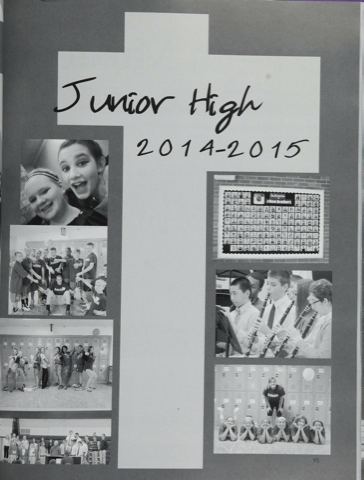 Junior High
2014-2015